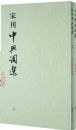 宋刊
中興詞選